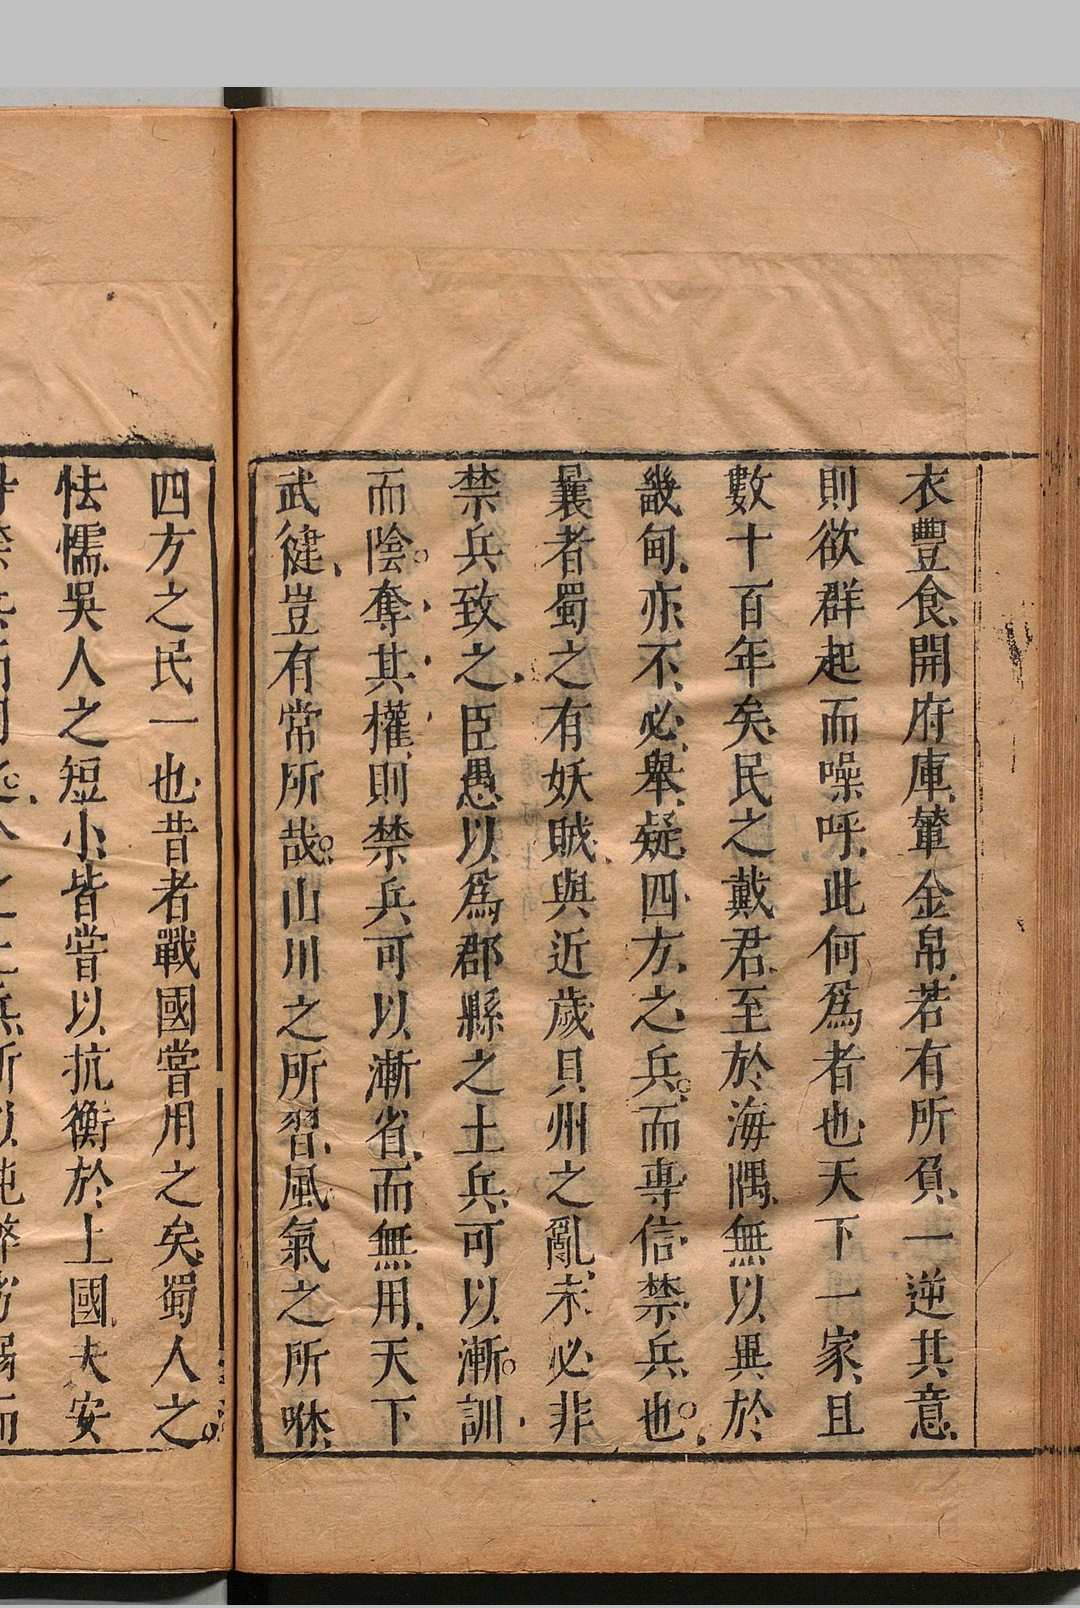 衣豐食開府庫輦金帛若有所負一逆其意
則欲群起而噪呼此何爲者也天下一家且
數十百年矣民之戴君至於海隅無以異於
畿甸亦不必舉疑四方之兵而專信禁兵也
曩者蜀之有妖賊與近歲貝州之亂未必非
禁兵致之臣愚以爲郡縣之土兵可以漸訓
而陰奪其權則禁兵可以漸省而無用天下
武健豈有常所哉山川之所習風氣之所咻
四方之民一也昔者戰國嘗用之矣蜀人之
怯懦吳人之短小皆嘗以抗衡於上國夫安